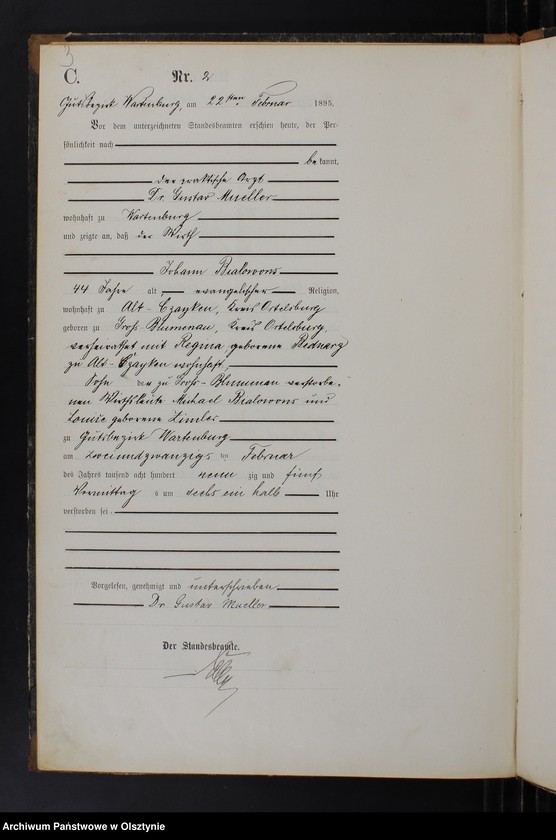 3
C. Nr. 2
Gutsbezirk Wartenburg, am 22sten Februar 1895.
Vor dem unterzeichneten Standesbeamten erschien heute, der Per-
sönlichkeit nach
be kannt,
der praktische Arzt
Dr. Gustav Mueller
wohnhaft zu Wartenburg
und zeigte an, daß der Wirth
Johann Bialowons
44 Jahre alt, evangelischer Religion,
wohnhaft zu Alt-Czayken, Kreis Ortelsburg
geboren zu Groß-Blumenau, Kreis Ortelsburg,
verheirathet mit Regina geborene Bednarz
zu Alt-Czayken wohnhaft,
Sohn der zu Groß-Blumenau verstorbe-
nen Wirthsleute Michael Bialowons und
Louise geborene
zu Gutsbezirk Wartenburg
am zweiundzwanzigs ten Februar
des Jahres tausend acht hundert neun zig und fünf
Vormittag s um sechs ein halb Uhr
verstorben sei.
Vorgelesen, genehmigt und unterschrieben
Dr Gustav Mueller
Der Standesbeamte.
Archiwum Państwowe w Olsztynie